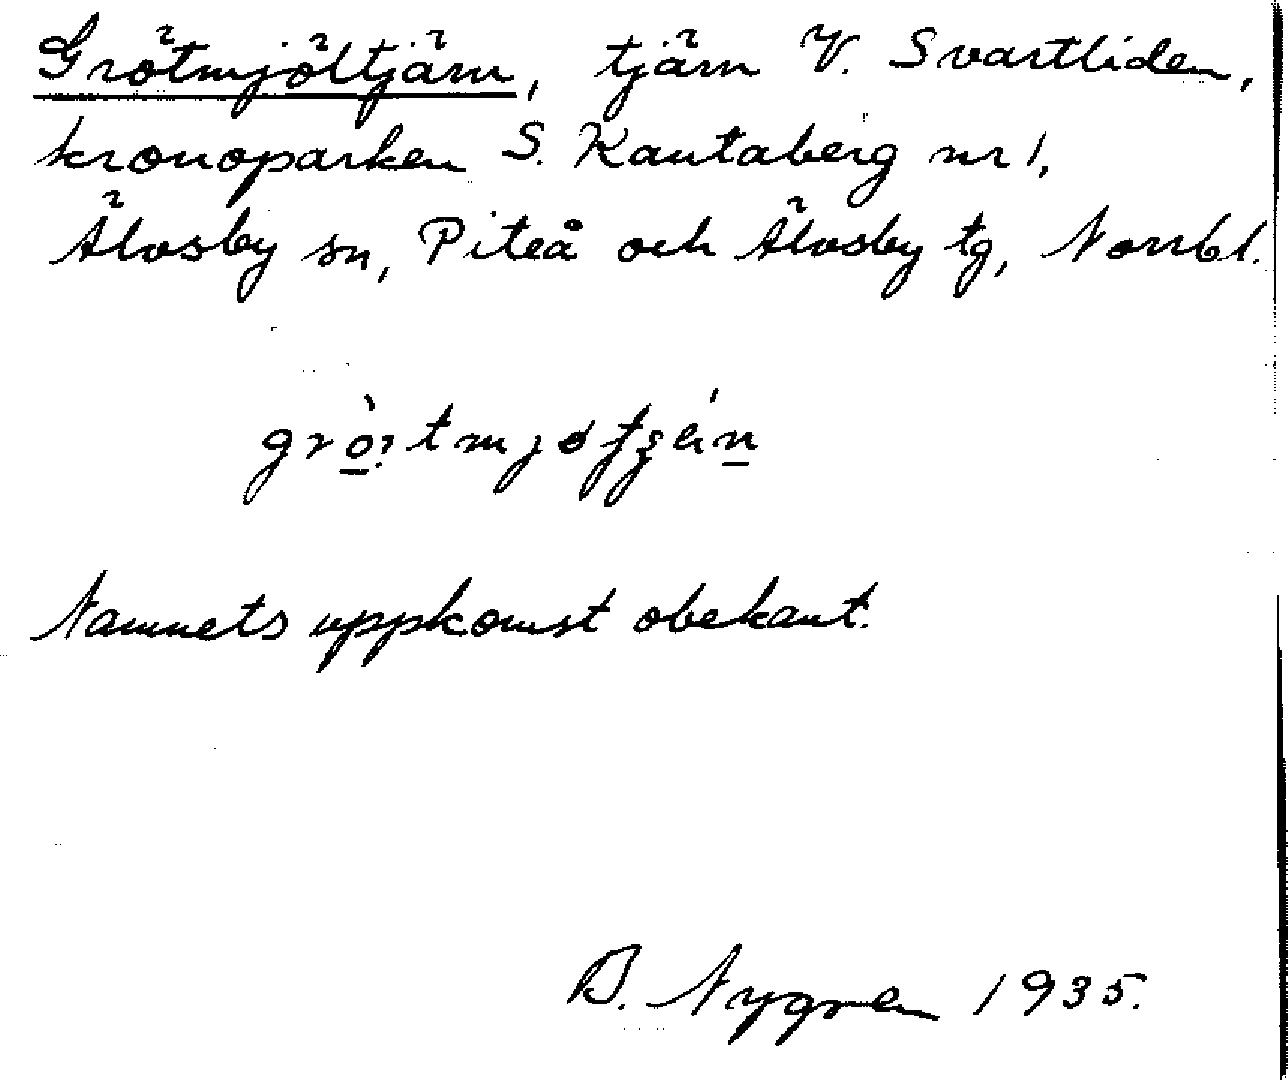 Grötmjöltjärn, tjärn V. Svartliden,
kronoparken S. Kantaberg nr 1,
Älvsby sn, Piteå och Älvsby tg, Norrbl.
Namnets uppkomst obekant.
B. Nygren 1935.